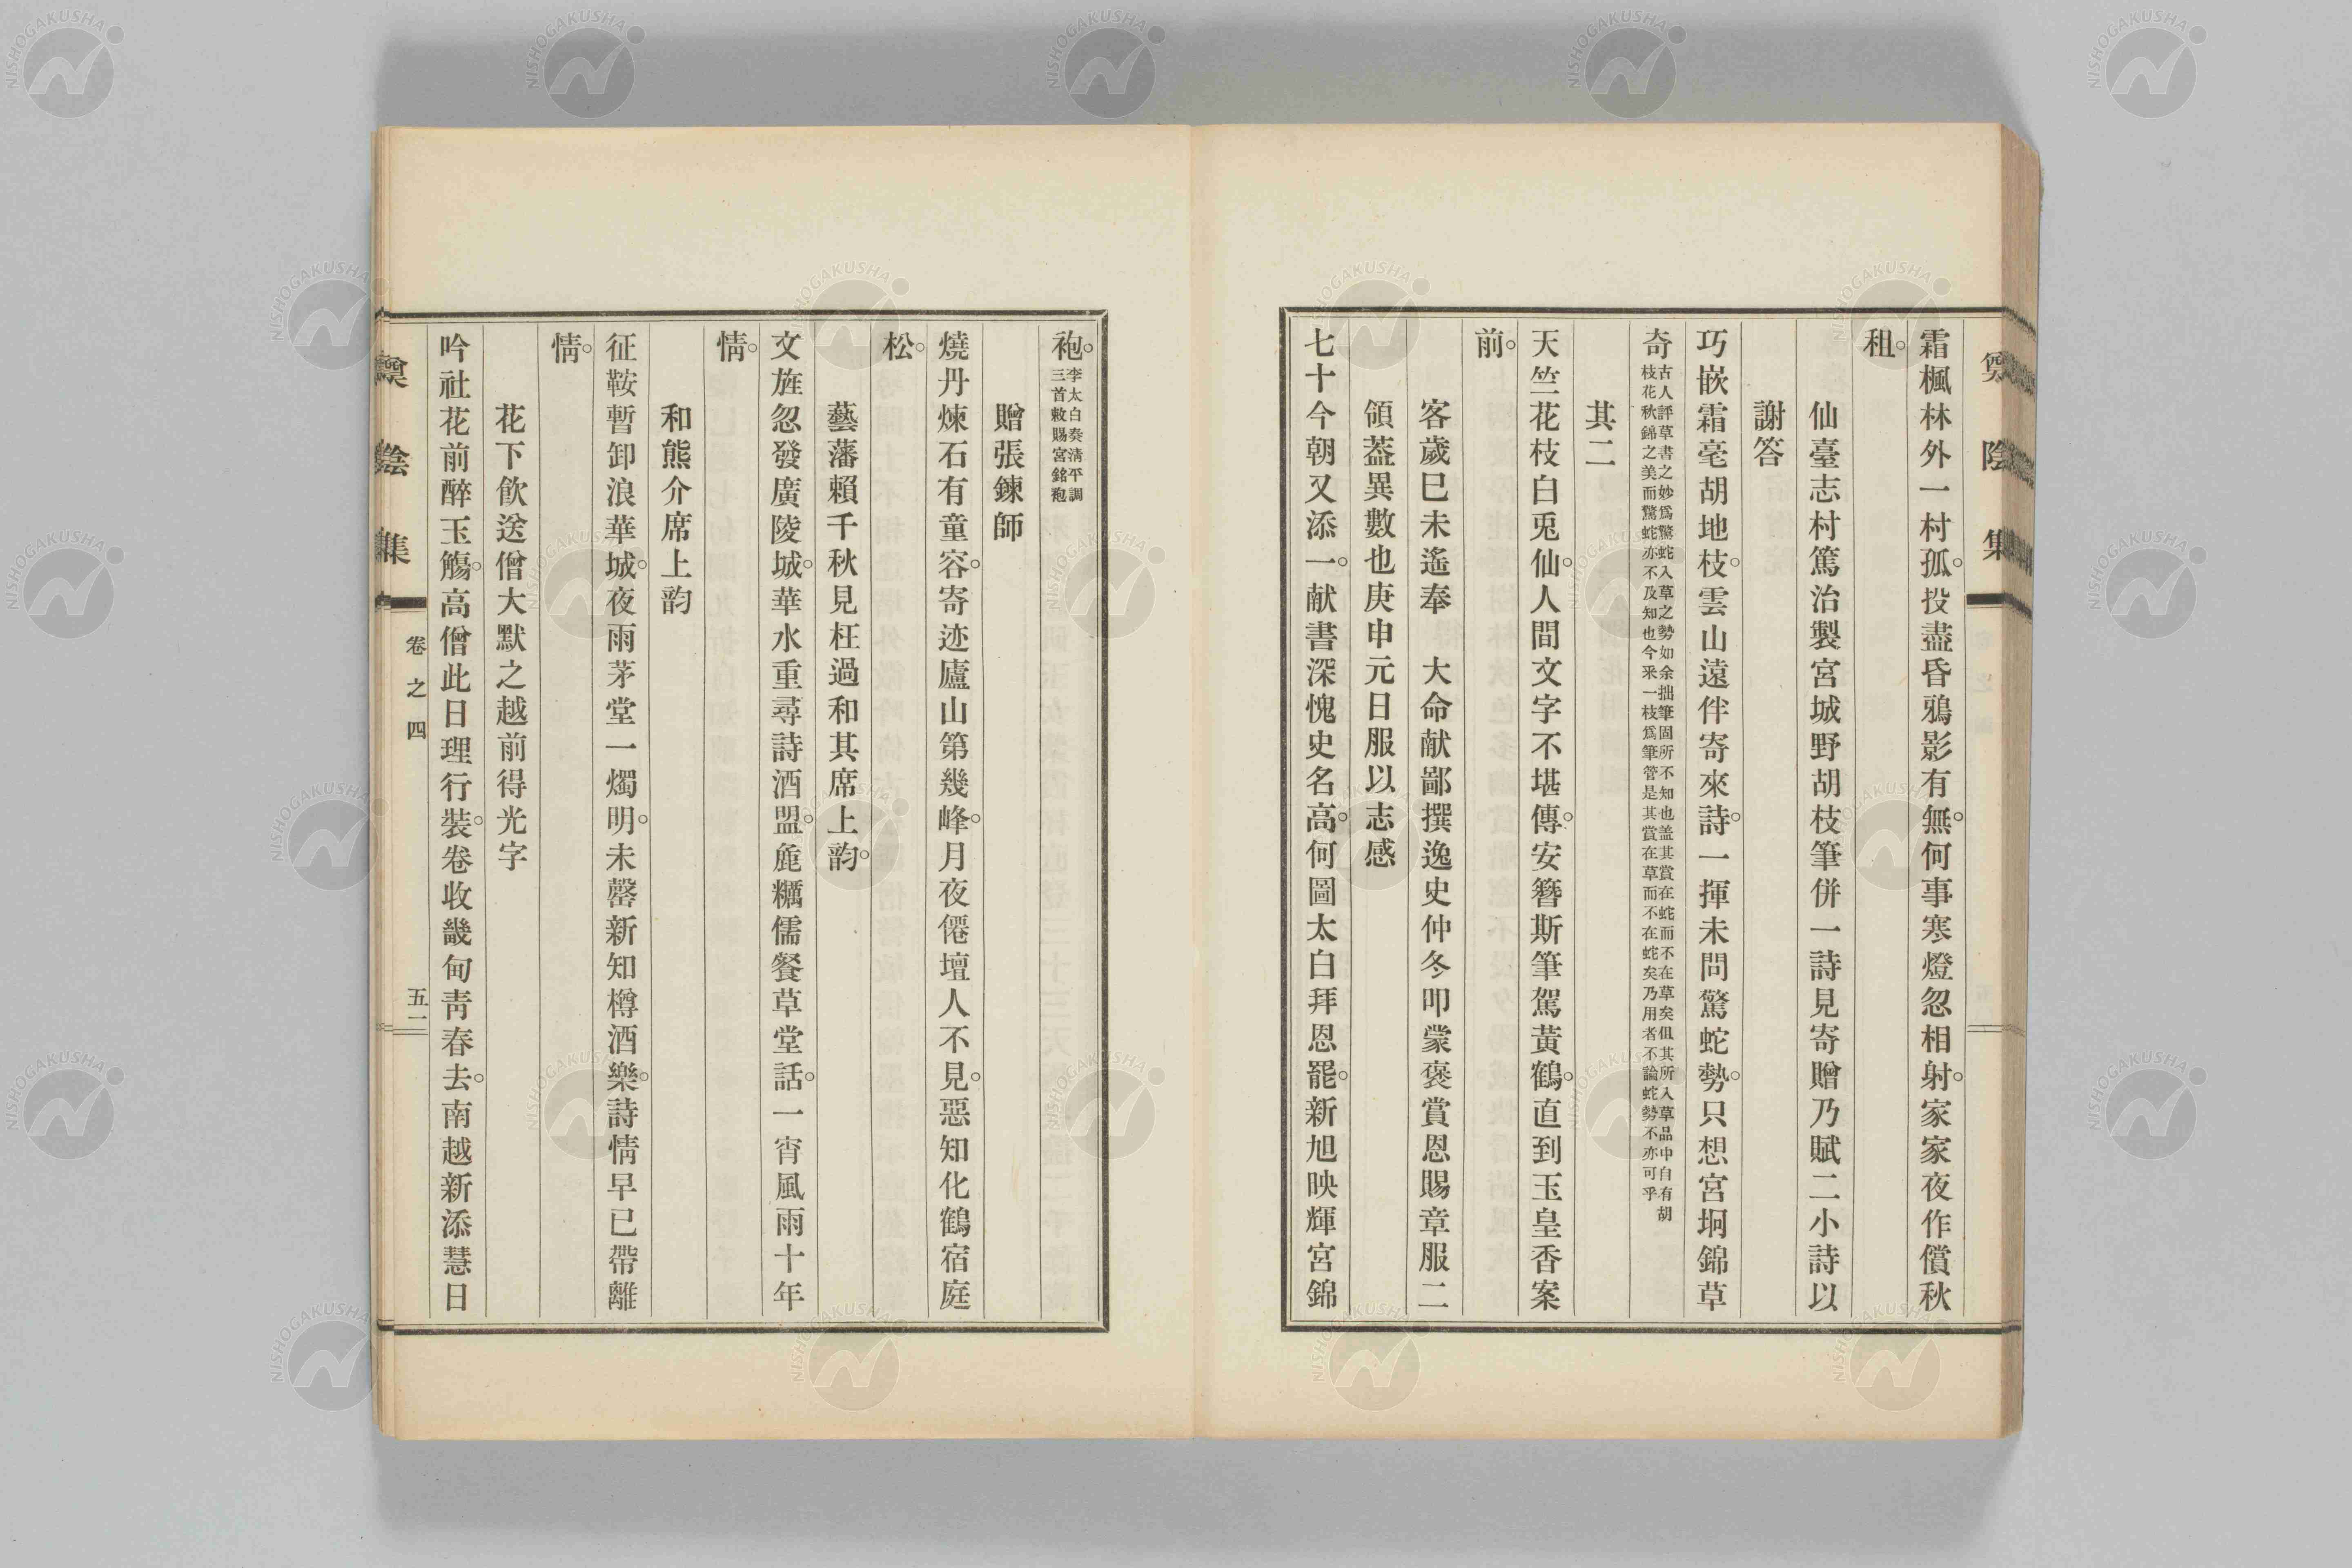 霜楓林外一村孤。投盡昏鴉影有無。何事寒燈忽相射。家家夜作償秋
租。
仙臺志村篤治製宮城野胡枝筆併一詩見寄贈乃賦二小詩以
謝答
巧嵌霜毫胡地枝。雲山遠伴寄來詩。一揮未問驚蛇勢。只想宮坰錦草
奇
古人評草書之妙爲驚蛇入草之勢如余拙筆固所不知也盖其賞在蛇而不在草矣但其所入草品中自有胡
枝花秋錦之美而驚蛇亦不及知也今釆一枝爲筆管是其賞在草而不在蛇矣乃用者不論蛇勢不亦可乎
其二
天竺花枝白兎仙。人間文字不堪傳。安簪斯筆駕黃鶴。直到玉皇香案
前。
客歲巳未遙奉　大命献鄙撰逸史仲冬叩蒙褒賞恩賜章服二
領葢異數也庚申元日服以志感
七十今朝又添一。献書深愧史名高。何圖太白拜恩罷。新旭映輝宮錦
袍。
李太白奏淸平調
三首敕賜宮錦袍
贈張鍊師
燒丹煉石有童容。寄迹廬山第幾峰。月夜僊壇人不見。惡知化鶴宿庭
松。
藝藩賴千秋見枉過和其席上韵。
文旌忽發廣陵城。華水重尋詩酒盟。麁糲儒餐草堂話。一宵風雨十年
情。
和熊介席上韵
征鞍暫卸浪華城。夜雨茅堂一燭明。未罄新知樽酒樂。詩情早已帶離
情。
花下飮送僧大默之越前得光字
吟社花前醉玉觴。高僧此日理行裝。卷收畿甸靑春去。南越新添慧日
陰集
卷之四
五一